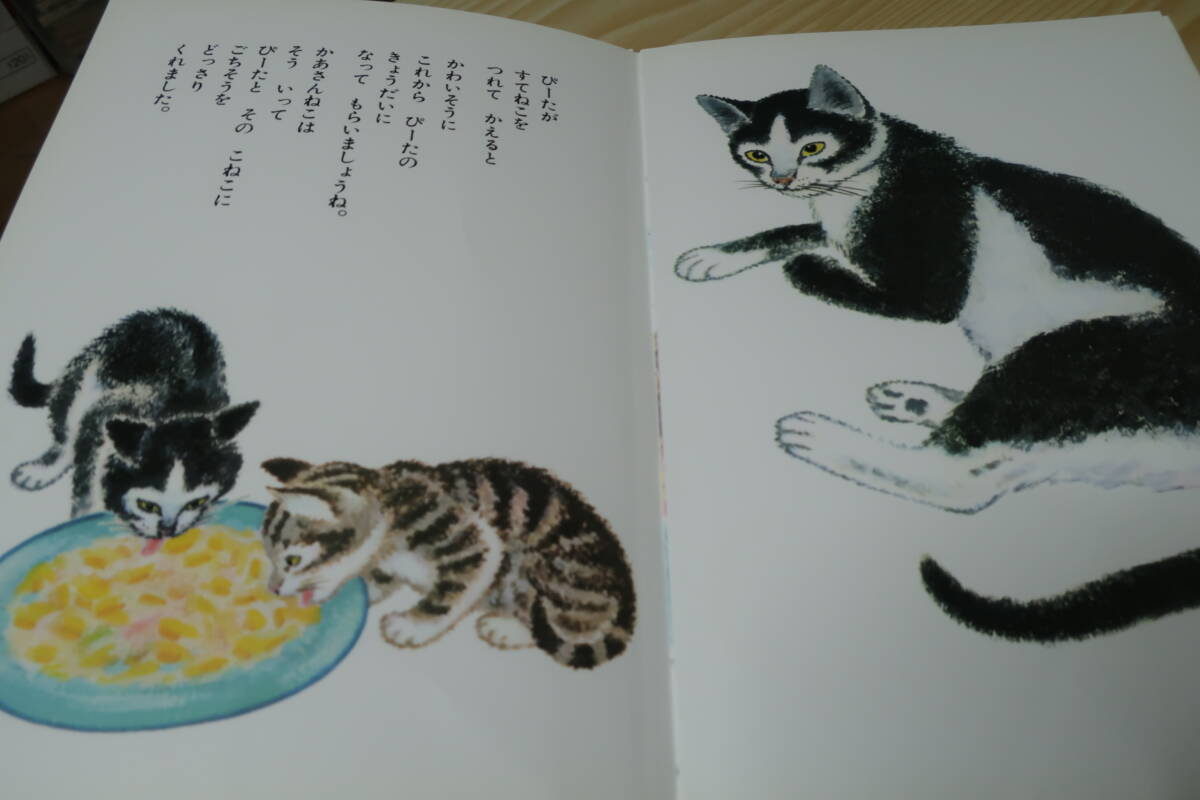 ぴーたが
すてねこを
つれて かえると
かわいそうに
これから ぴーたの
きょうだいに
なって もらいましょうね。
かあさんねこは
そう いって
ぴーたと その こねこに
ごちそうを
どっさり
くれました。